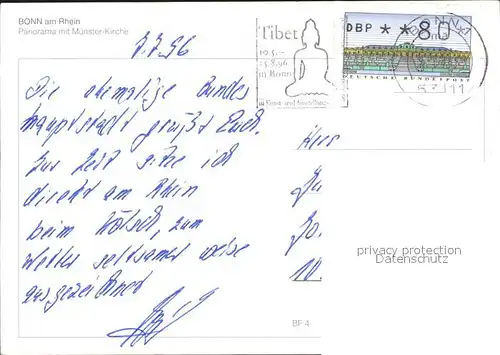 BONN am Rhein
Panorama mit Münster-Kirche
7.7.96
Tibet
10.5.-
25.8.96
in Bonn
Kunst- und Ausstellungs-
DBP * * 80
DEUTSCHE BUNDESPOST
BONN
5311
Die ehemalige Bundes
hauptstadt grüßt Euch.
Zur Zeit sitze ich
direkt am Rhein
beim Kölsch, zum
Wetter seltsamer weise
ausgezeichnet
Herr
10
privacy protection
Datenschutz
BF 4